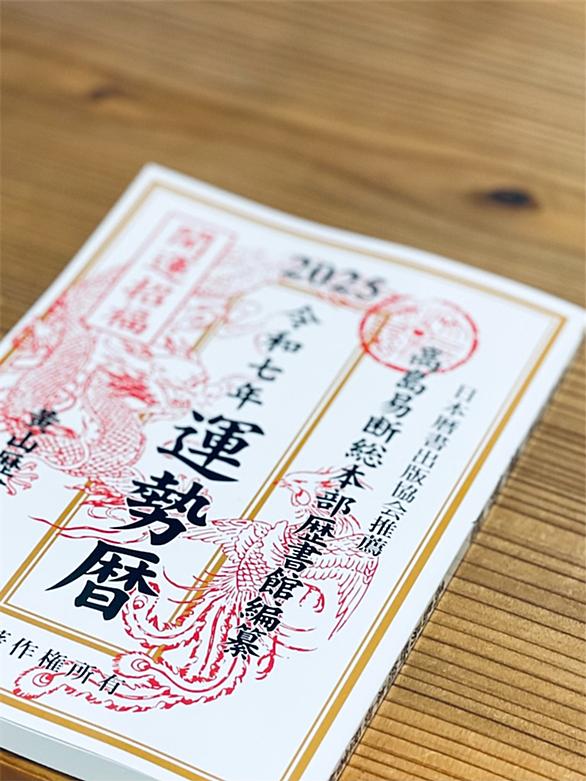 2025
日本暦書出版協会推薦
高島易断総本部歴書館編纂
令和七年
運勢暦
開運招福
華山暦
著作権所有